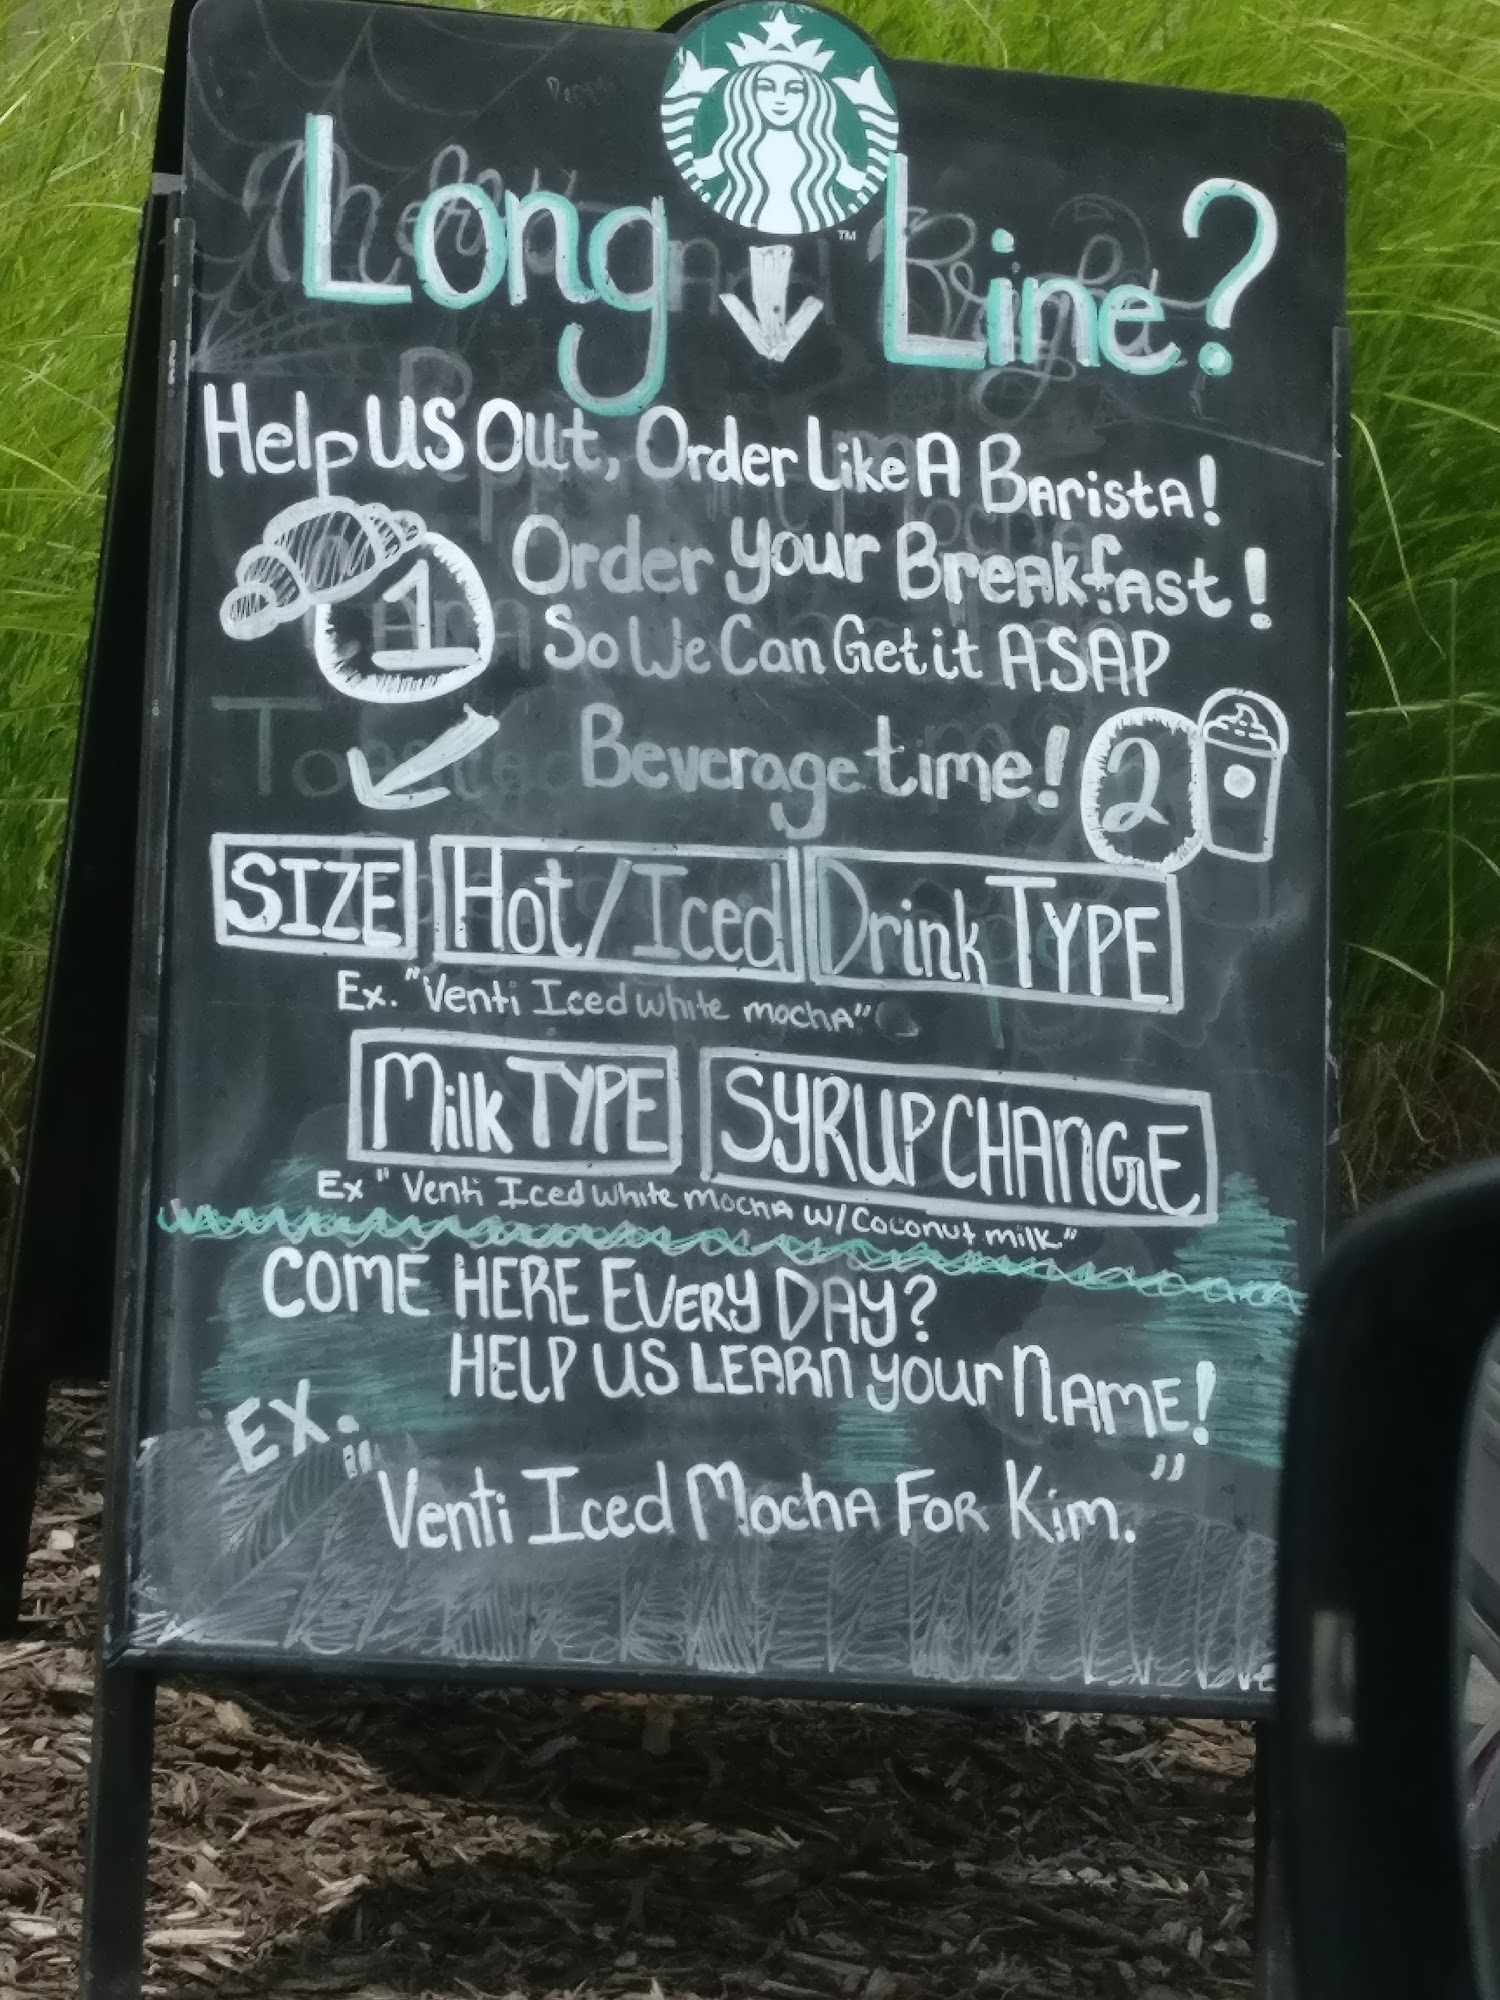 Long Line?
TM
Help US Out, Order Like A Barista!
1 Order your Breakfast!
So We Can Get it ASAP
Beverage time! 2
SIZE Hot/Iced Drink TYPE
Ex. "Venti Iced white mocha"
Milk TYPE SYRUP CHANGE
Ex "Venti Iced white Mocha w/ Coconut milk"
COME HERE EVERY DAY?
HELP US LEARN your NAME!
EX.
"Venti Iced Mocha For Kim."